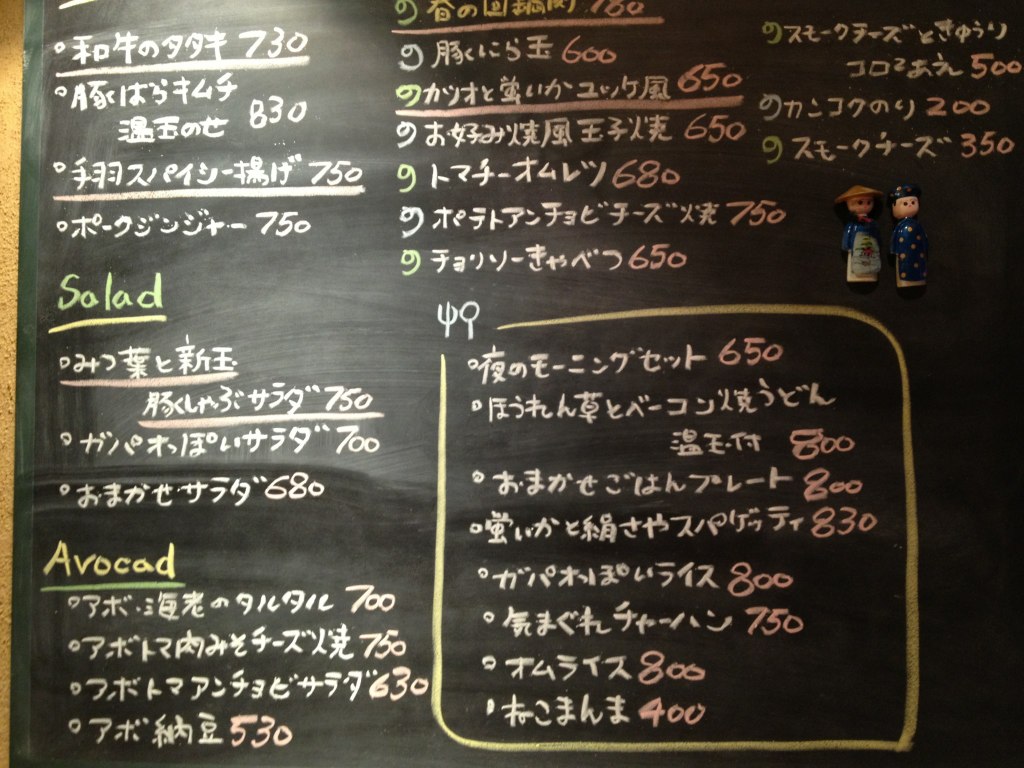 和牛のタタキ 730
豚ばらキムチ
温玉のせ 830
手羽スパイシー揚げ 750
ポークジンジャー 750
Salad
みつ葉と新玉
豚しゃぶサラダ 750
ガパオっぽいサラダ 700
おまかせサラダ 680
Avocad
アボ・海老のタルタル 700
アボトマ肉みそチーズ焼 750
アボトマアンチョビサラダ 630
アボ納豆 530
春の回鍋肉 780
豚にら玉 600
カツオと蛍いかユッケ風 650
お好み焼風玉子焼 650
トマチーオムレツ 680
ポテトアンチョビチーズ焼 750
チョリソーきゃべつ 650
スモークチーズときゅうり
コロコロあえ 500
カンコクのり 200
スモークチーズ 350
夜のモーニングセット 650
ほうれん草とベーコン焼うどん
温玉付 800
おまかせごはんプレート 800
蛍いかと絹さやスパゲッティ 830
ガパオっぽいライス 800
気まぐれチャーハン 750
オムライス 800
ねこまんま 400